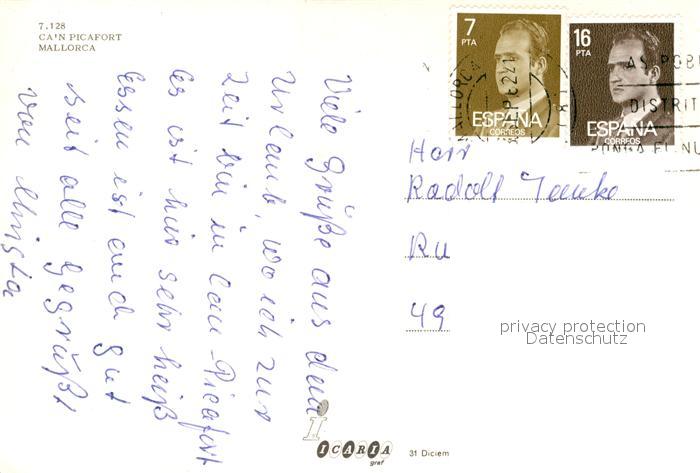 7.128
CA'N PICAFORT
MALLORCA
Viele Grüße aus dem
Urlaub, wo ich zur
Zeit bin in Can-Picafort
Es ist hier sehr heiß
Essen ist auch gut
seit alle gegrüßt
von Christa
7
PTA
ESPAÑA
CORREOS
16
PTA
ESPAÑA
CORREOS
DISTRIT
PONGA EL NU
Herr
Rudolf
Ru
49
privacy protection
Datenschutz
ICARIA
graf
31 Diciem